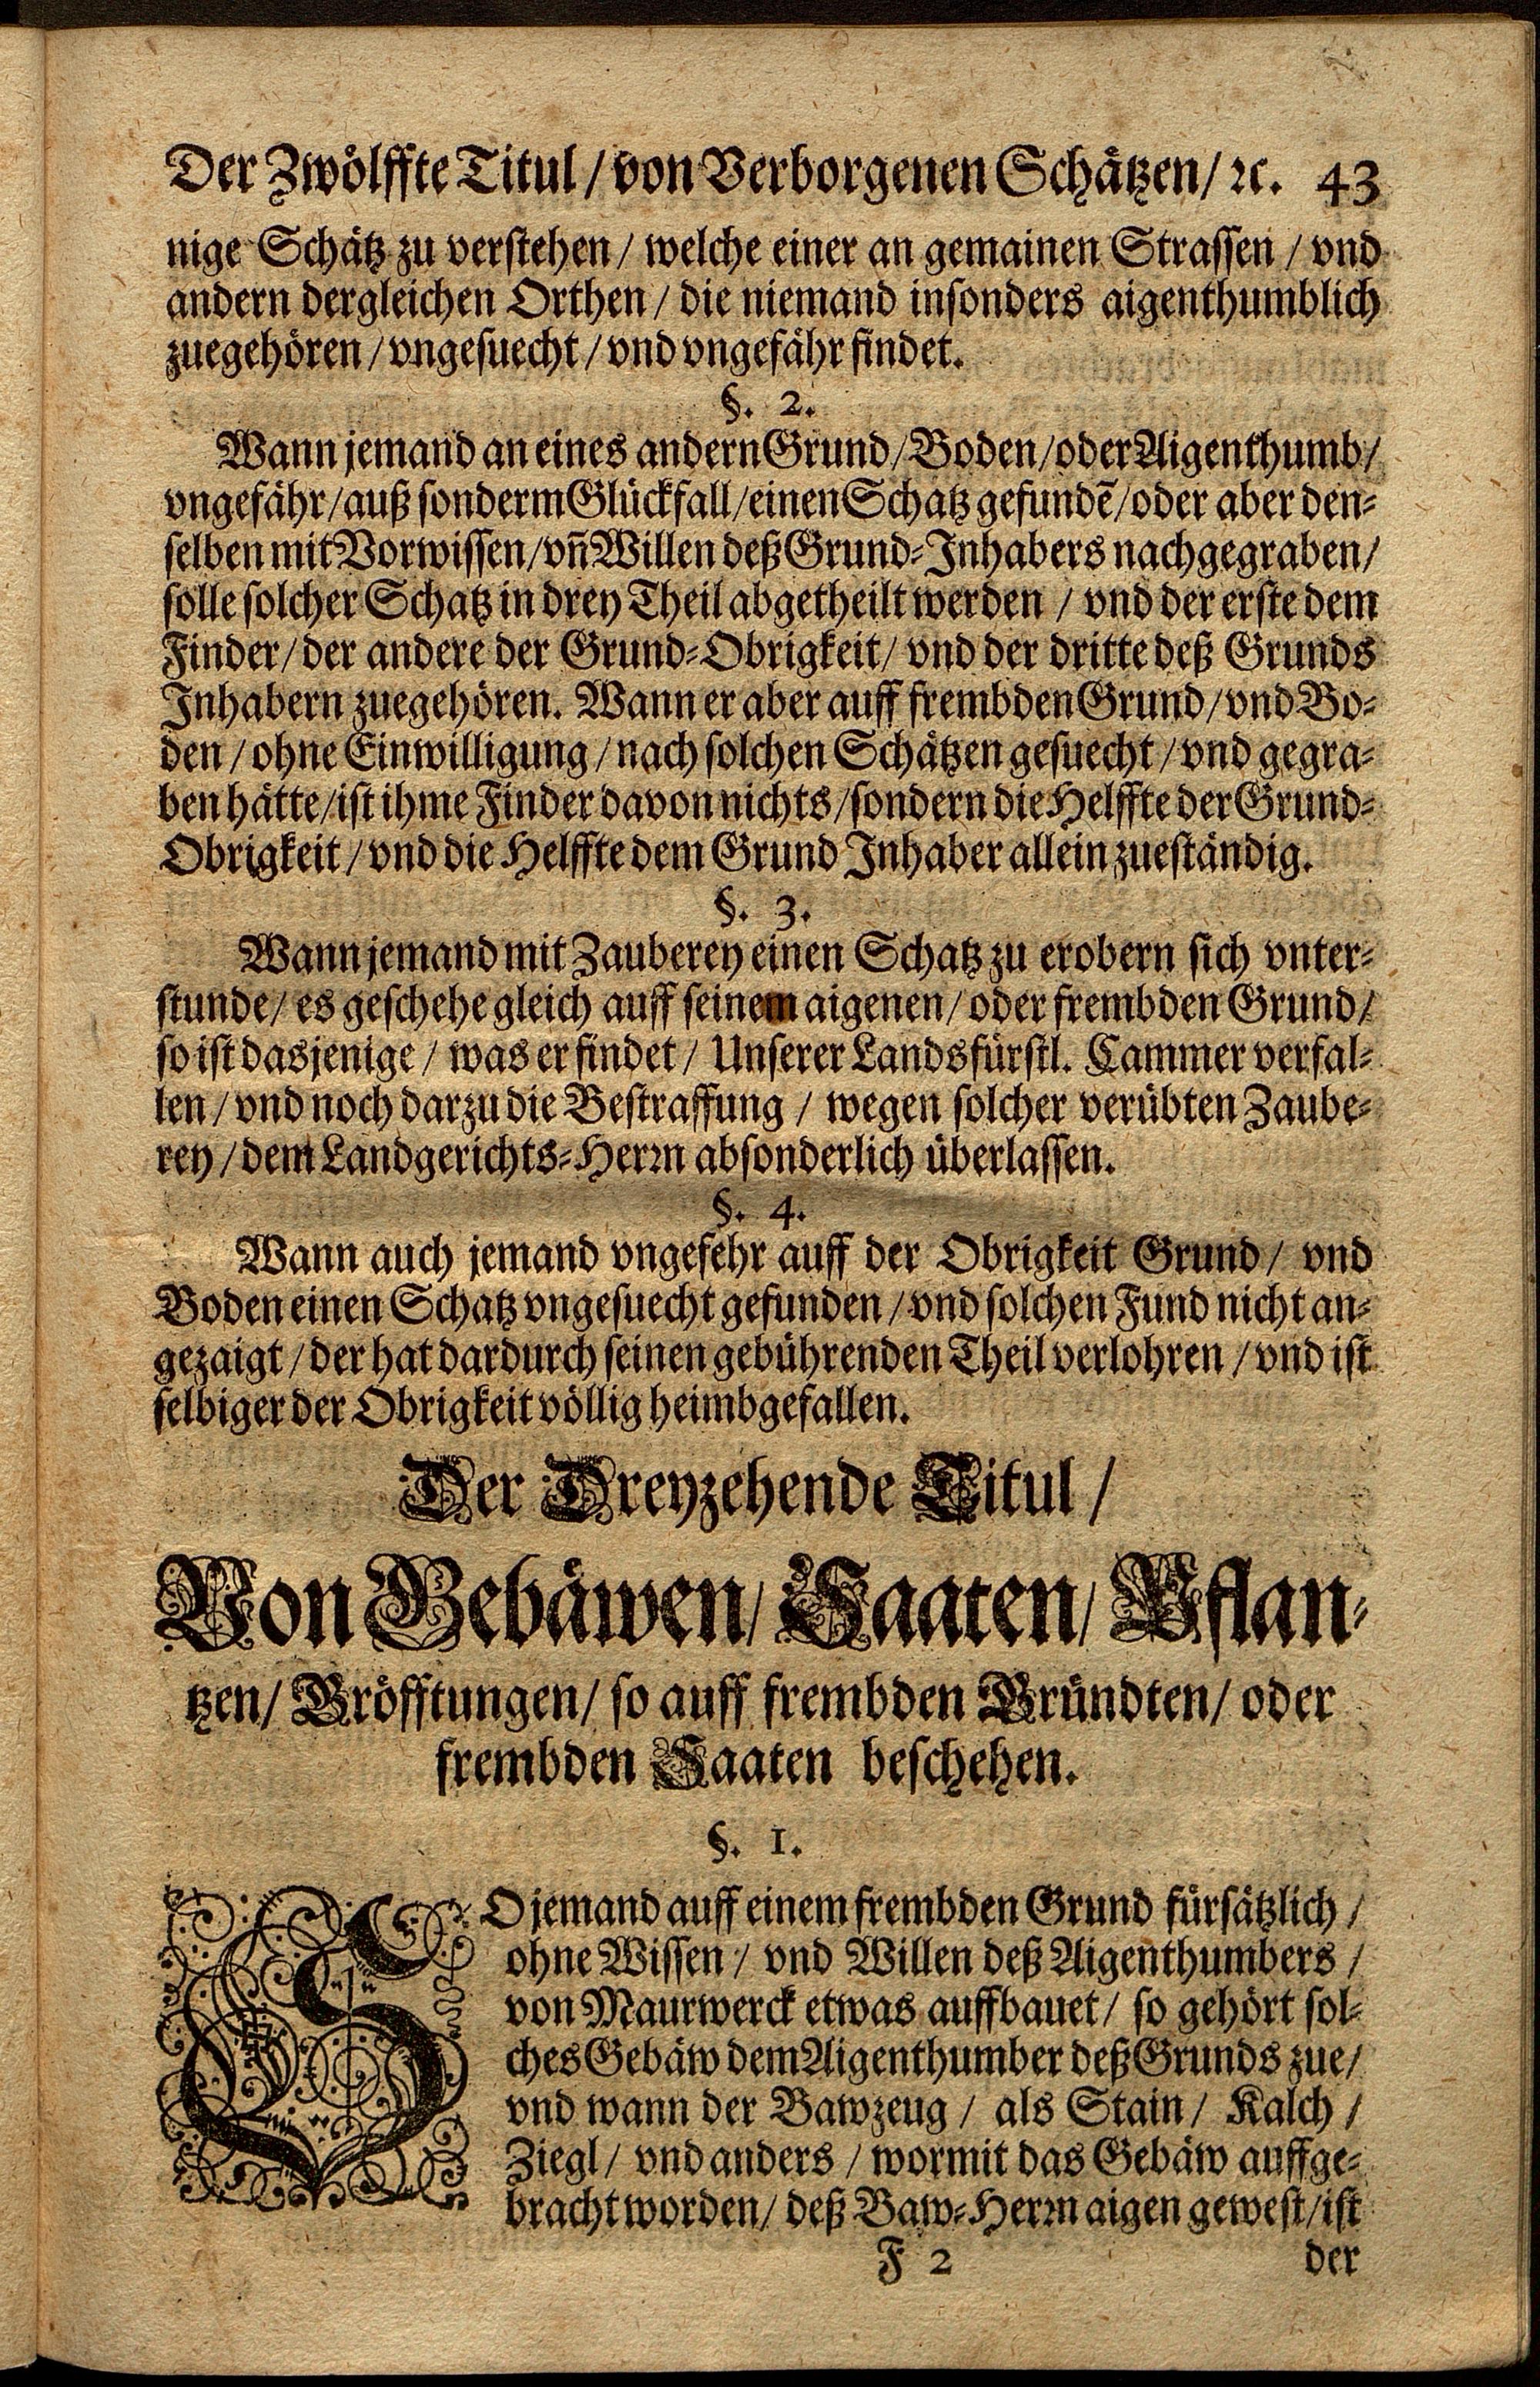 Der Zwölffte Titul / von Verborgenen Schätzen / ꝛc. 43
nige Schätz zu verstehen / welche einer an gemainen Strassen / vnd
andern dergleichen Orthen / die niemand insonders aigenthumblich
zuegehören / vngesuecht / vnd vngefähr findet.
§. 2.
Wann jemand an eines andern Grund / Boden / oder Aigenthumb /
vngefähr / auß sonderm Glückfall / einen Schatz gefundē / oder aber den⸗
selben mit Vorwissen / vn̄ Willen deß Grund⸗Inhabers nachgegraben /
solle solcher Schatz in drey Theil abgetheilt werden / vnd der erste dem
Finder / der andere der Grund⸗Obrigkeit / vnd der dritte deß Grunds
Inhabern zuegehören. Wann er aber auff frembden Grund / vnd Bo⸗
den / ohne Einwilligung / nach solchen Schätzen gesuecht / vnd gegra⸗
ben hätte / ist ihme Finder davon nichts / sondern die Helffte der Grund⸗
Obrigkeit / vnd die Helffte dem Grund Inhaber allein zueständig.
§. 3.
Wann jemand mit Zauberey einen Schatz zu erobern sich vnter⸗
stunde / es geschehe gleich auff seinem aigenen / oder frembden Grund /
so ist dasjenige / was er findet / Unserer Landsfürstl. Cammer verfal⸗
len / vnd noch darzu die Bestraffung / wegen solcher verübten Zaube⸗
rey / dem Landgerichts⸗Herrn absonderlich überlassen.
§. 4.
Wann auch jemand vngefehr auff der Obrigkeit Grund / vnd
Boden einen Schatz vngesuecht gefunden / vnd solchen Fund nicht an⸗
gezaigt / der hat dardurch seinen gebührenden Theil verlohren / vnd ist
selbiger der Obrigkeit völlig heimbgefallen.
Der Dreyzehende Titul /
Von Gebäwen / Saaten / Pflan⸗
tzen / Gröfftungen / so auff frembden Gründten / oder
frembden Saaten beschehen.
§. 1.
SO jemand auff einem frembden Grund fürsätzlich /
ohne Wissen / vnd Willen deß Aigenthumbers /
von Maurwerck etwas auffbauet / so gehört sol⸗
ches Gebäw dem Aigenthumber deß Grunds zue /
vnd wann der Bawzeug / als Stain / Kalch /
Ziegl / vnd anders / wormit das Gebäw auffge⸗
bracht worden / deß Baw⸗Herrn aigen gewest / ist
F 2 der